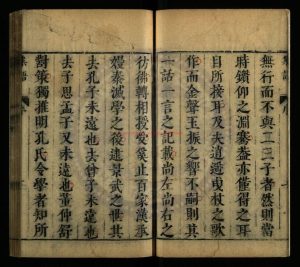 無行而不與二三子者然則當
時鑽仰之淵騫葢亦僅得之耳
目所接耳及夫逍遥曳杖之歌
作而金聲玉振之響不嗣則其
一話一言之記載尚左尚右之
彷彿轉相授受奚止百家漢承
嫚秦滅學之後遠景武之世其
去孔子未遠也去曾子未遠也
去子思孟子又未遠也董仲舒
對策獨推明孔氏令學者知所
集語